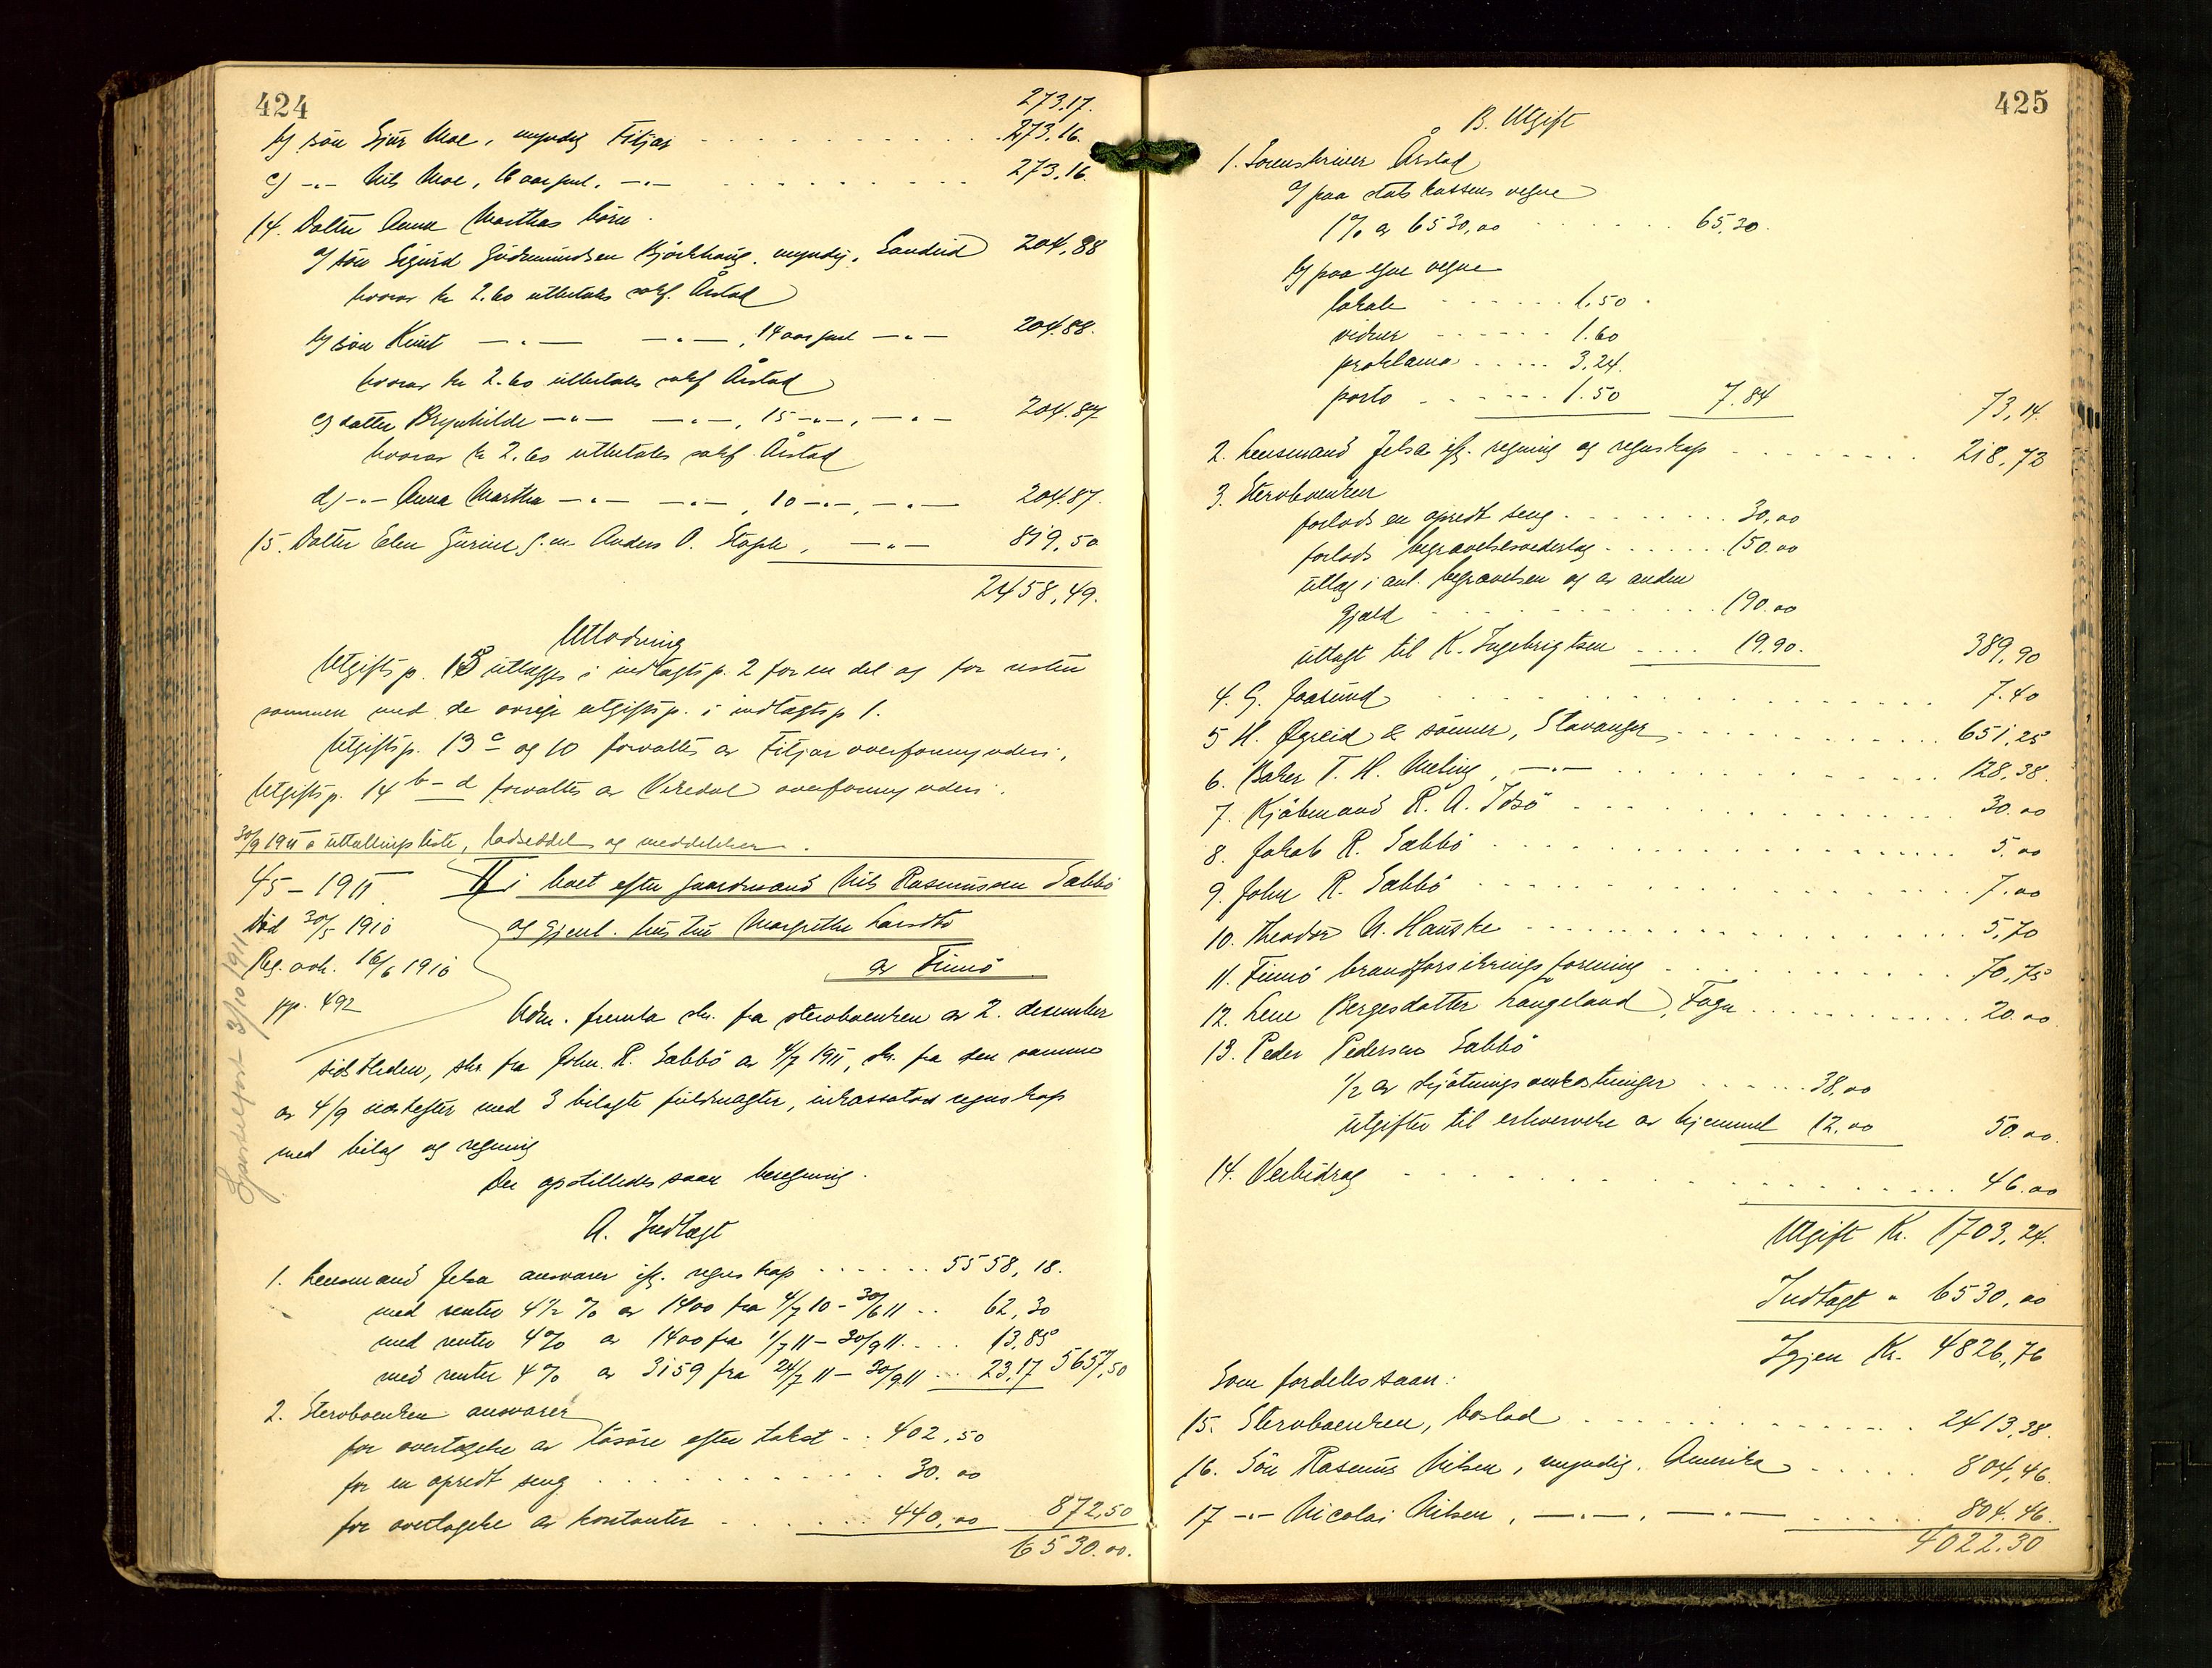 424
273.17.
b) søn Sjur Moe, myndig Filjar . . . . . . . 273,16.
c) -"- Nils Moe, 16 aar gml. -"- . . . . . . . 273,16.
14. Datter Anna Marthas børn.
a) søn Sigurd Gudmundsen Bjørkhaug, myndig, Sandeid 204,88
hvorav kr 2.60 utbetales sakf. Årstad
b) søn Knut -"- -"-, 14 aar gml -"- 204.88.
hvorav kr 2.60 utbetales sakf Årstad
c) datter Brynhilde -"- -"-, 15 -"-, -"- 204.87
hvorav kr 2.60 utbetales sakf. Årstad
d) -"- Anna Martha -"- -"-, 10 -"-, -"- 204.87.
15. Datter Elen Gurine g.m. Anders O. Stople, -"- 819,50
2458,49.
Utlodning
Utgiftsp. 15 utlægges i indtægtsp. 2 for en del og for resten
sammen med de øvrige utgiftsp. i indtægtsp 1.
Utgiftsp. 13 c og 10 forvaltes av Filjar overformynderi,
Utgiftsp. 14 b – d forvaltes av Vikedal overformynderi.
30/9 1911 utstillingsliste, lodseddel og meddelelser.
4/5 – 1911 II i boet efter gaardmand Nils Rasmussen Sabbö
Död 30/5 1910 og gjenl. hustru Margrethe Larsdtr
Reg. avh. 16/6 1910 av Finnö
pp. 492
Skjæmtedelfört 3/10 1911
Adm. fremla skr. fra sterboenken av 2. desember
sidstleden, skr fra John. R. Sabbö av 4/7 1911, skr. fra den samme
av 4/9 næstefter med 3 bilagte fuldmagter, inkassators regnskap
med bilag og regning
Der opstilledes saan beregning.
A. Indtægt
1. Lensmand Jelsa ansvarer ifg. regnskap . . . . . . 5558,18.
med renter 4½ % av 1400 fra 4/7 10 – 30/6 11 . . 62,30
med renter 4% av 1400 fra 1/7 11 – 30/9 11 . . . . 13,85
med renter 4% av 3159 fra 24/7 11 – 30/9 11 . . . 23,17 5657,50
2. Sterboenken ansvarer
for overtagelse av løsøre efter takst . . 402,50
for en opredt seng . . . . . . . . . . 30.00
for overtagelse av kontanter . . . . . . . 440,00 872,50
6530.00.
425
B. Utgift
1. Sorenskriver Årstad
a) paa statskassens vegne
1% av 6530,00 . . . . . . . 65,30.
b) paa egne vegne
lokale . . . . . . . 1.50.
vidner . . . . . . . 1.60
proklama . . . . . 3,24.
porto . . . . . . . 1.50 7.84 73,14.
2. Lensmand Jelsa ifg. regning og regnskap . . . . . . . . 218,72
3. Sterboenken
forlods en opredt seng . . . . . . . . 30,00
forlods begravelsesvederlag . . . . . . 150.00
utlæg i anl. begravelsen og av anden
gjæld . . . . . . . . . . . . 190.00
utlagt til K. Ingebrigtsen . . . . . 19.90. 389,90
4. G. Joasund . . . . . . . . . . . . . . 7.40
5 H. Øgreid & sønner, Stavanger . . . . . . . . . . 651,25
6. Baker T. H. Meling, -"- . . . . . . . . . . . . 128,38.
7. Kjøbmand R. A. Idsö . . . . . . . . . . . 30.00
8. Jakob R. Sabbö . . . . . . . . . . . . 5.00
9. John R. Sabbö . . . . . . . . . . . . . 7.00
10. Theodor N. Hauske . . . . . . . . . . . . 5,70
11. Finnö brandforsikringsforening . . . . . . . . . . 70,75
12. Lene Bergesdatter Haugeland, Fogn . . . . . . . . . 20.00
13. Peder Pedersen Sabbö
½ av skjötningsomkostninger . . . . . . 38,00
utgifter til erhvervelse av hjemmel 12,00 50.00.
14. Veibidrag . . . . . . . . . . . . 46.00
Utgift Kr. 1703,24.
Indtægt " 6530,00
Igjen Kr. 4826,76
Som fordeles saan:
15. Sterboenken, boslod . . . . . . . . . . 2413,38.
16. Søn Rasmus Nilsen, myndig, Amerika . . . . . . 804,46.
17 -"- Nicolai Nilsen, -"-, -"- . . . . . . 804.46.
4022.30